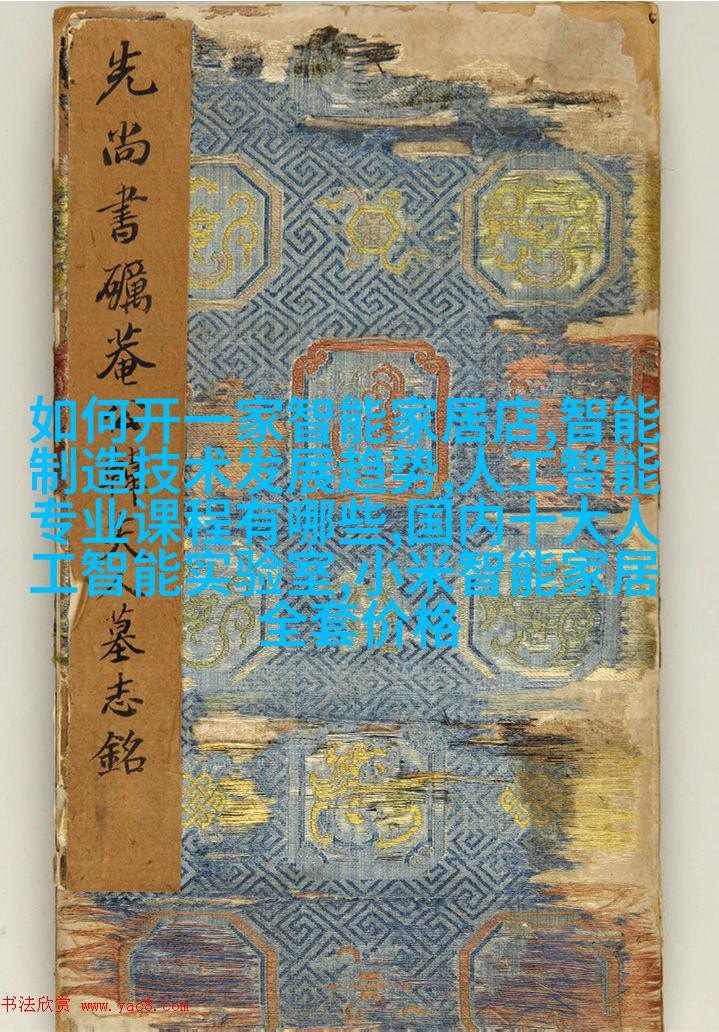 先尚書礪菴墓志銘
如何开一家智能家居店,智能
制造技术发展趋势,人工智能
专业课程有哪些,国内十大人
工智能实验室,小米智能家居
全套价格
书法欣赏 www.yac8.com